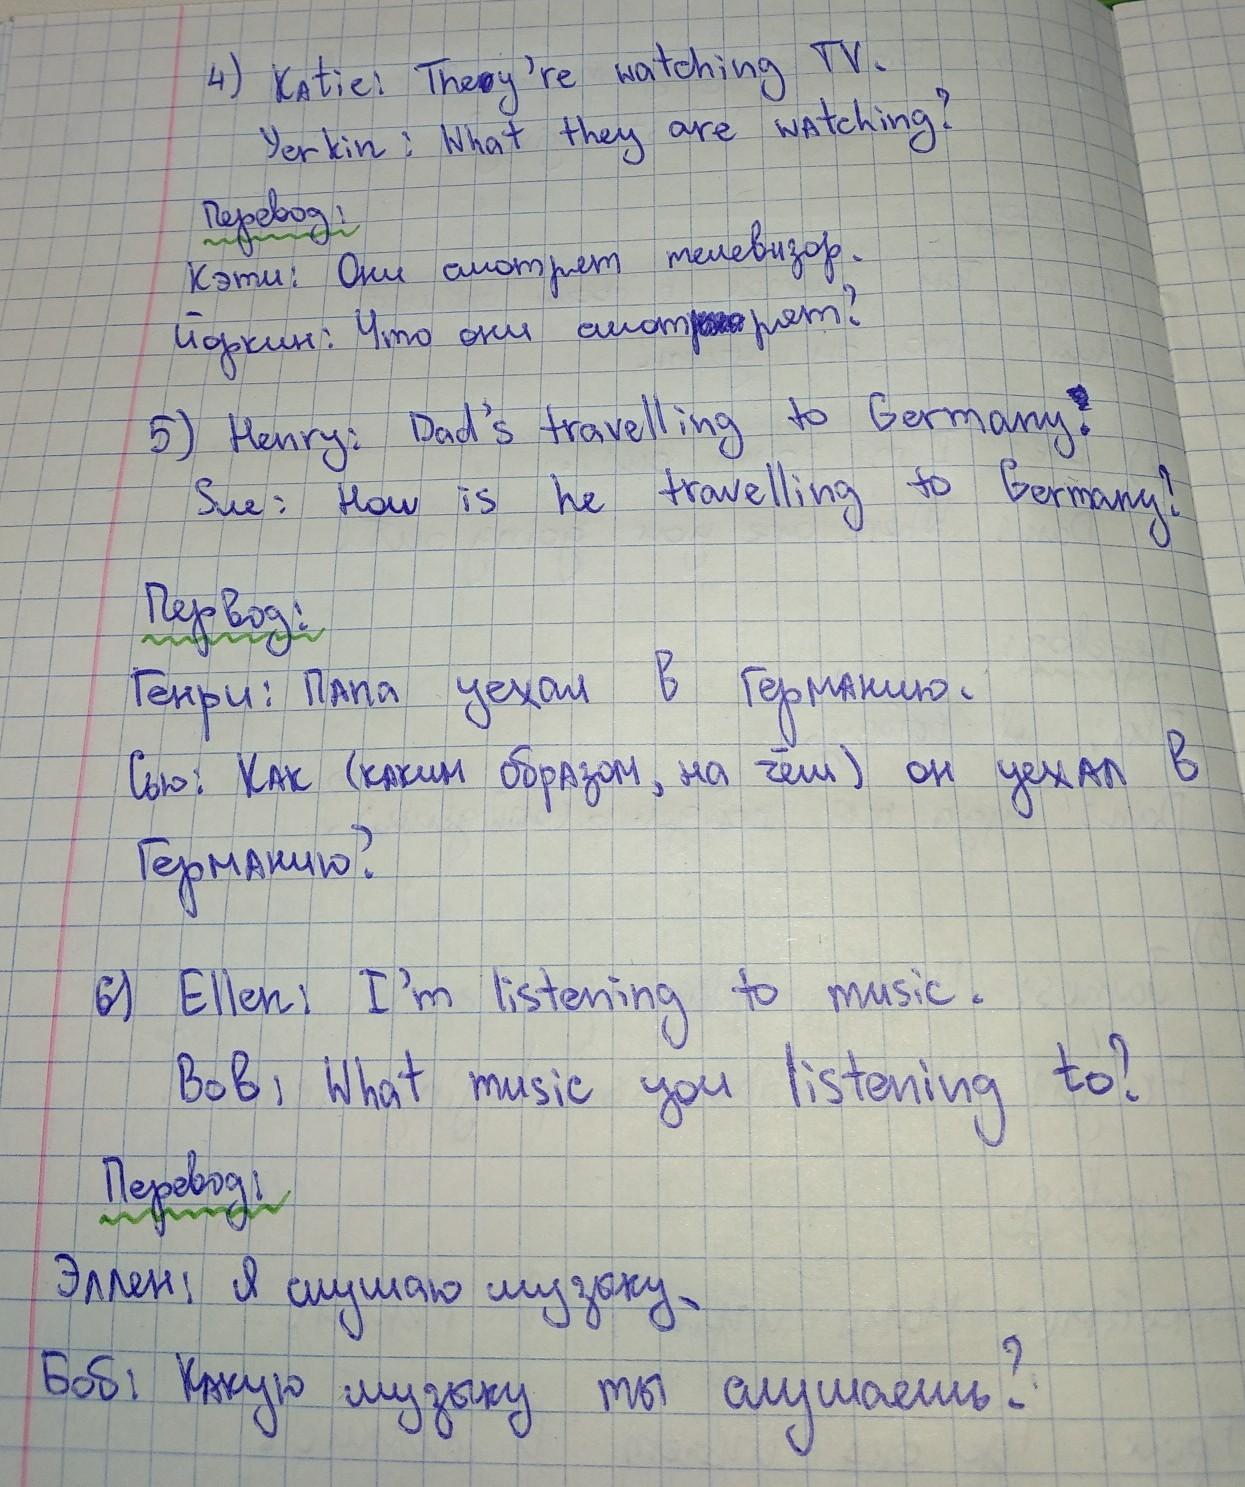 4) Katie: They're watching TV.
Yerkin: What they are watching?
Перевод:
Кэти: Они смотрят телевизор.
Йоркин: Что они смотрят?
5) Henry: Dad's travelling to Germany.
Sue: How is he travelling to Germany?
Первод:
Генри: Папа уехал в Германию.
Сью: Как (каким образом, на чём) он уехал в
Германию?
6) Ellen: I'm listening to music.
Bob: What music you listening to?
Перевод:
Эллен: Я слушаю музыку.
Боб: Какую музыку ты слушаешь?